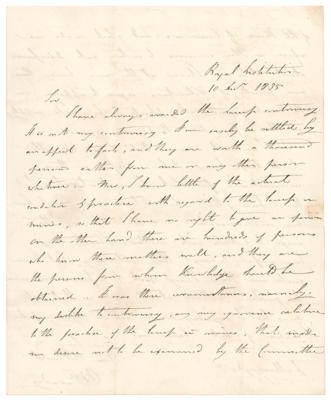 Royal Institution
10 Dec. 1835
Sir
I have always avoided the lamp controversy
It is not my controversy. It can easily be settled by
an appeal to fact, and they are worth a thousand
persons either from me or any other person
whatever - Now, I know little of the actual
condition & practice with regard to the lamp in
mines, so that I have no right to give an opinion
on the other hand there are hundreds of persons
who know these matters well, and they are
the persons from whom Knowledge should be
obtained. It was these circumstances, namely:
my dislike to controversy, and my ignorance relative
to the practice of the lamp in mines, that made
me desire not to be examined by the Committee